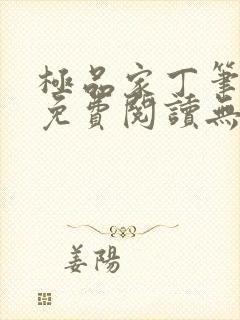 極品家丁筆
免費閱讀無
姜陽